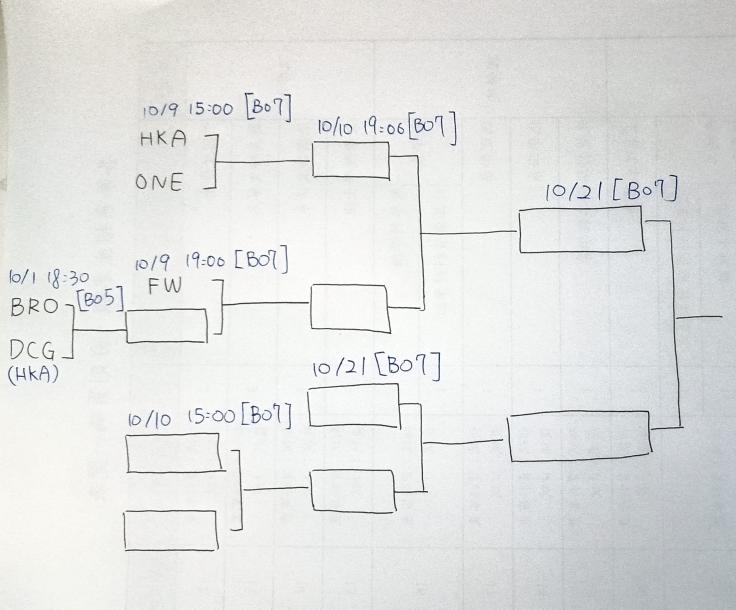 10/9 15:00 [Bo7]
HKA
ONE
10/10 19:00 [Bo7]
10/21 [Bo7]
10/1 18:30
BRO
[Bo5]
DCG
(HKA)
10/9 19:00 [Bo7]
FW
10/21 [Bo7]
10/10 15:00 [Bo7]